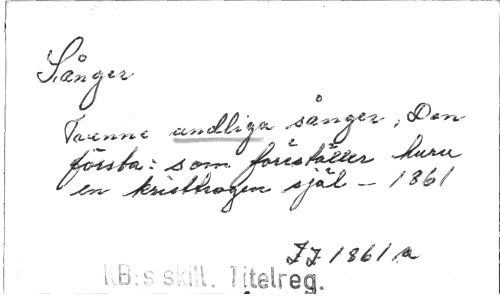 Sånger
Tvenne andliga sånger; Den
första: som föreställer huru
en kristtrogen själ – 1861
JJ 1861 a
KB:s skill. Titelreg.